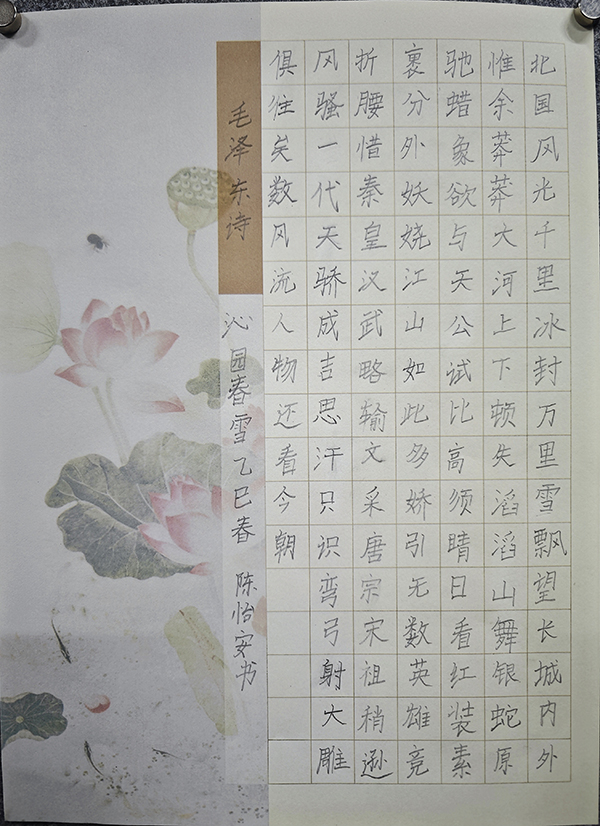 北国风光千里冰封万里雪飘望长城内外
惟余莽莽大河上下顿失滔滔山舞银蛇原
驰蜡象欲与天公试比高须晴日看红装素
裹分外妖娆江山如此多娇引无数英雄竞
折腰惜秦皇汉武略输文采唐宗宋祖稍逊
风骚一代天骄成吉思汗只识弯弓射大雕
俱往矣数风流人物还看今朝
毛泽东诗
沁园春雪乙巳春 陈怡安书